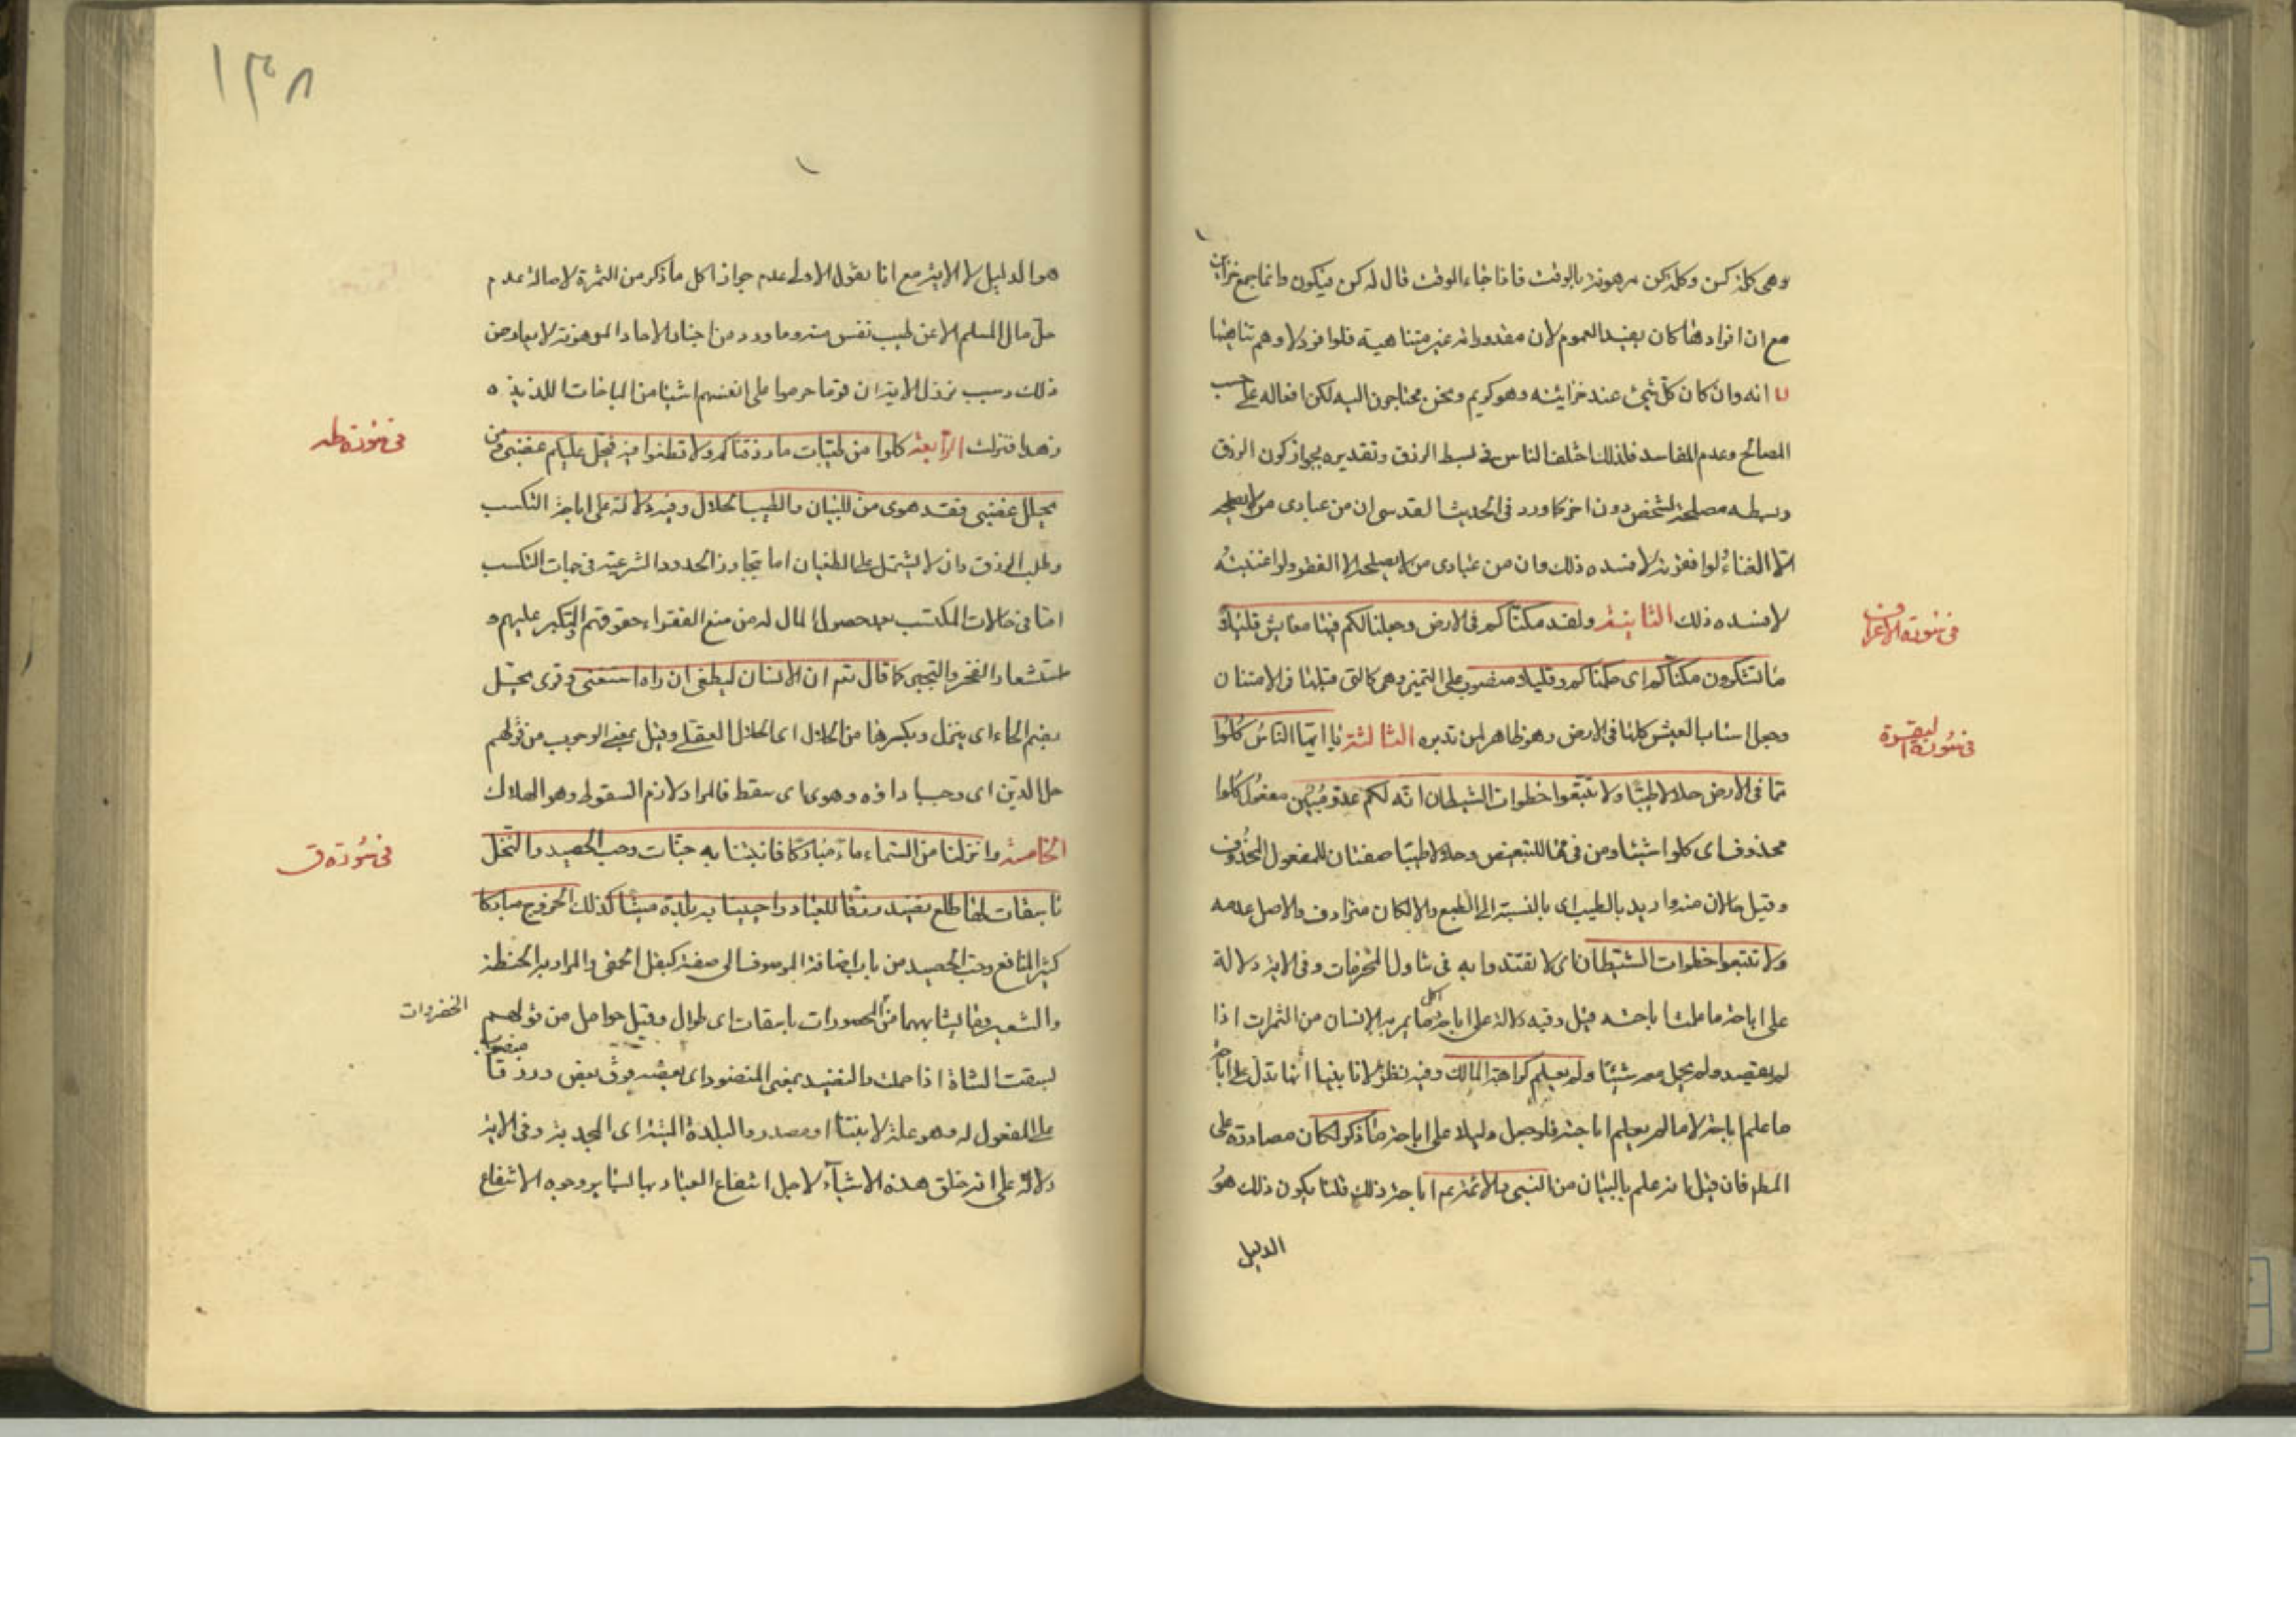 وهى كلمة كن وكلمة كن مرهونة بالوقت فاذا جاء الوقت قال له كن فيكون وانما جمع خزائن
مع ان افرادها كان يفيد العموم لان مقدوراته غير متناهية فلو افرد لاوهم تناهيها
انه وان كان كل شئ عند خزائنه وهو كريم ونحن محتاجون اليه لكن افعاله على حسب
المصالح وعدم المفاسد فلذلك اختلف الناس فى بسط الرزق وتقديره بجواز كون الرزق
وبسطه مصلحة لشخص دون اخر كما ورد فى الحديث القدسى ان من عبادى من لا يصلحه
الا الغناء لو افقرته لافسده ذلك وان من عبادى من لا يصلحه الا الفقر ولو اغنيته
لافسده ذلك الثانية ولقد مكناكم فى الارض وجعلنا لكم فيها معايش قليلا
فى سورة الاعراف
ما تشكرون مكناكم اى ملكناكم وقليلا منصوب على التميز وهى كالتى قبلها فى الامتنان
وجعل اسباب العيش كلها فى الارض وهو ظاهر لمن تدبره الثالثة يا ايها الناس كلوا
فى سورة البقرة
مما فى الارض حلالا طيبا ولا تتبعوا خطوات الشيطان انه لكم عدو مبين مفعول كلوا
محذوف اى كلوا شيئا ومن فى مما للتبعيض وحلالا طيبا صفتان للمفعول المحذوف
وقيل حالان منه واريد بالطيب اى بالنسبة الى الطبع والا لكان مترادف والاصل عدمه
ولا تتبعوا خطوات الشيطان اى لا تقتدوا به فى تناول المحرمات وفى الاية دلالة
على اباحة ما علمنا باحته قيل وفيه دلالة على اباحة اكل ما يمر به الانسان من الثمرات اذا
لم يقصد ولم يحمل معه شيئا ولم يعلم كراهة المالك وفيه نظر لانا بينها انها تدل على اباحة
ما علم اباحته لا ما لم يعلم اباحته فلو جعل دليلا على اباحة ما ذكر لكان مصادرة على
المطم فان قيل انه علم بالبيان من النبى والائمة عم اباحة ذلك قلنا يكون ذلك هو
الدليل
١٣٨
هو الدليل لا الاية مع انا نقول الاولى عدم جواز اكل ما ذكر من الثمرة لاصالة عدم
حل مال المسلم الا عن طيب نفس منه وما ورد من اخبار الاحاد الموهونة لا يعارض
ذلك وسبب نزول الاية ان قوما حرموا على انفسهم اشيا من المباحات اللذيذه
زهدا فنزلت الرابعة كلوا من طيبات ما رزقناكم ولا تطغوا فيه فيحل عليكم غضبى ومن
فى سورة طه
يحلل عليه غضبى فقد هوى من للبيان والطيب الحلال وفيه دلالة على اباحة التكسب
وطلب الرزق وان لا يشتمل على الطغيان اما بتجاوز الحدود الشرعية فى جهات التكسب
اما فى حالات المكتسب بعد حصول المال له من منع الفقراء حقوقهم والتكبر عليهم و
استشعار الفخر والتجبر كما قال تعم ان الانسان ليطغى ان راه استغنى وقرى يحل
بضم الحاء اى ينزل وبكسرها من الحلال اى الحلال العقلى وقيل بمعنى الوجوب من قولهم
حل الدين اى وجب اداؤه وهوى اى سقط فالمراد لازم السقوط وهو الهلاك
الخامسة وانزلنا من السماء ماء مباركا فانبتنا به جنات وحب الحصيد والنخل
فى سورة ق
باسقات لها طلع نضيد رزقا للعباد واحيينا به بلدة ميتا كذلك الخروج مباركا
كثير المنافع وحب الحصيد من باب اضافة الموصوف الى صفته كبقل الحمقى والمراد به الحنطة
والشعير وما يشابههما من المحصودات باسقات اى طوال وقيل حوامل من قولهم
الخضروات
بسقت الشاة اذا حملت والنضيد بمعنى المنضود اى بعضه فوق بعض ورزقا منصوب
على المفعول له وهو علة لانبتنا او مصدر والبلدة الميتة اى المجدبة وفى الاية
دلالة على انه خلق هذه الاشياء لاجل انتفاع العباد بها لسايروجوه الانتفاع